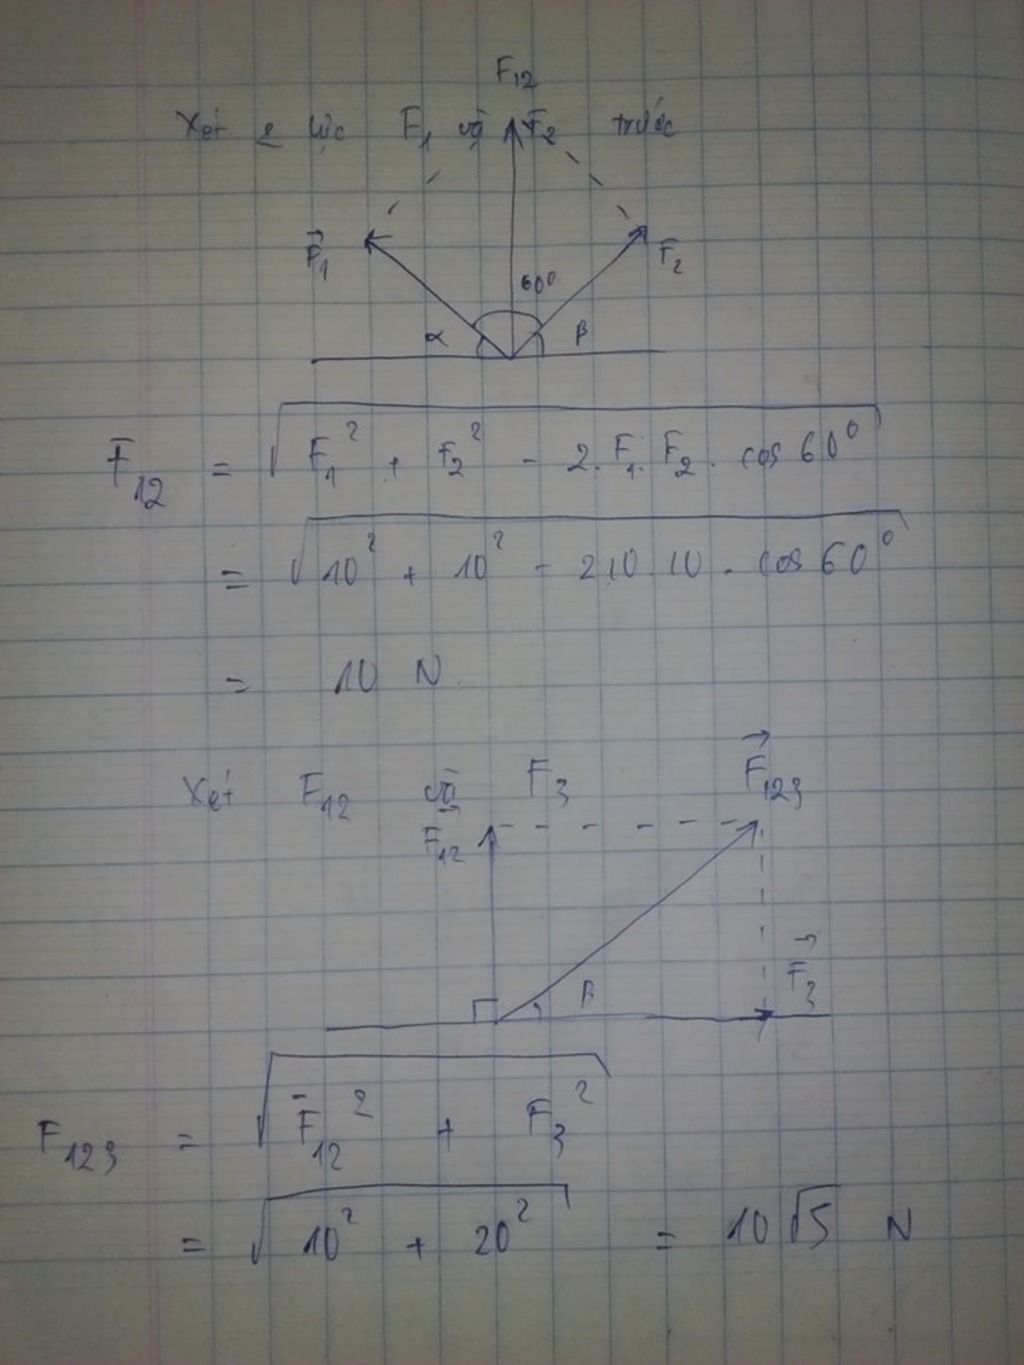 F₁₂
Xét 2 lực F₁ và F₂ trước
F⃗₁ F⃗₂
60⁰
α β
F₁₂ = √(F₁² + F₂² - 2.F₁.F₂.cos60⁰)
= √(10² + 10² - 2.10.10.cos60⁰)
= 10 N
Xét F₁₂ và F₃ F⃗₁₂₃
F⃗₁₂
F⃗₃
β
F₁₂₃ = √(F₁₂² + F₃²)
= √(10² + 20²) = 10√5 N